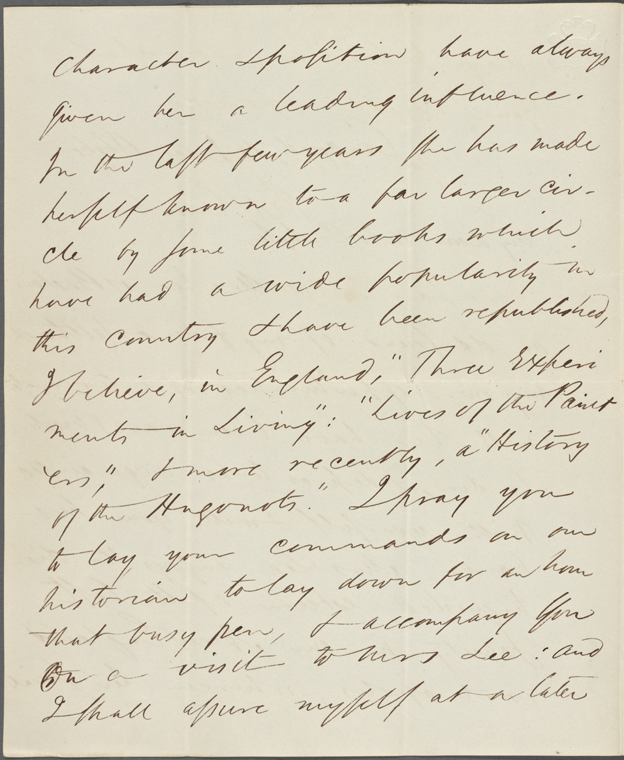 character & position have always
given her a leading influence.
In the last few years she has made
herself known to a far larger cir-
cle by some little books which
have had a wide popularity in
this country & have been republished,
I believe, in England, "Three Experi
ments in Living": "Lives of the Paint
ers," & more recently, a "History
of the Hugonots." I pray you
to lay your commands on our
historian to lay down for an hour
that busy pen, & accompany you
on a visit to Mrs Lee: and
I shall assure myself at a later